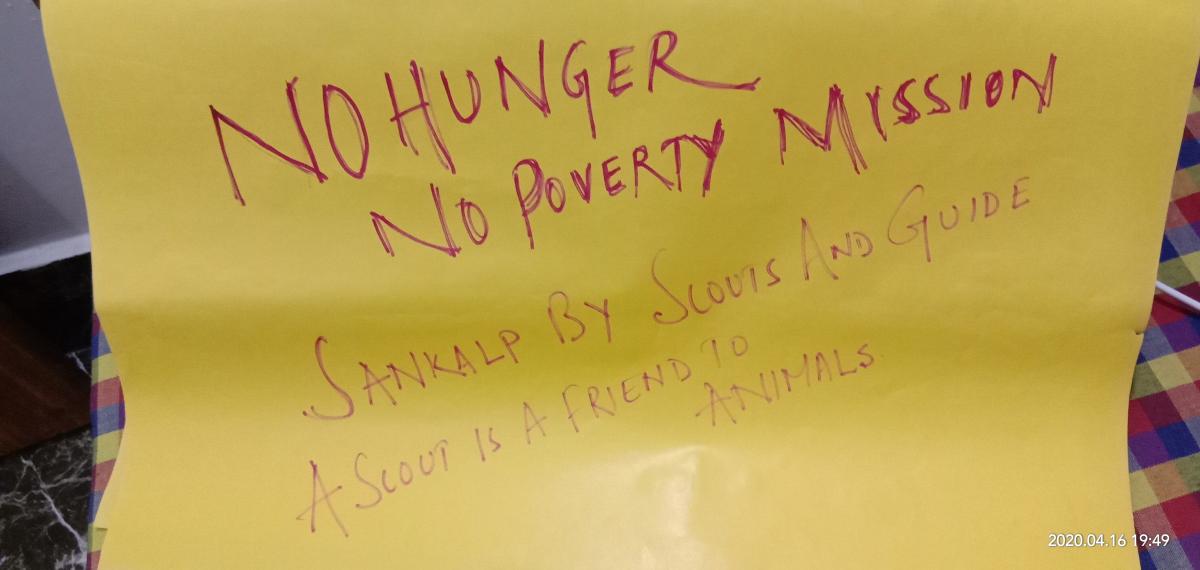 NO HUNGER
NO POVERTY MISSION
SANKALP BY SCOUTS AND GUIDE
A SCOUT IS A FRIEND TO
ANIMALS.
2020.04.16 19:49